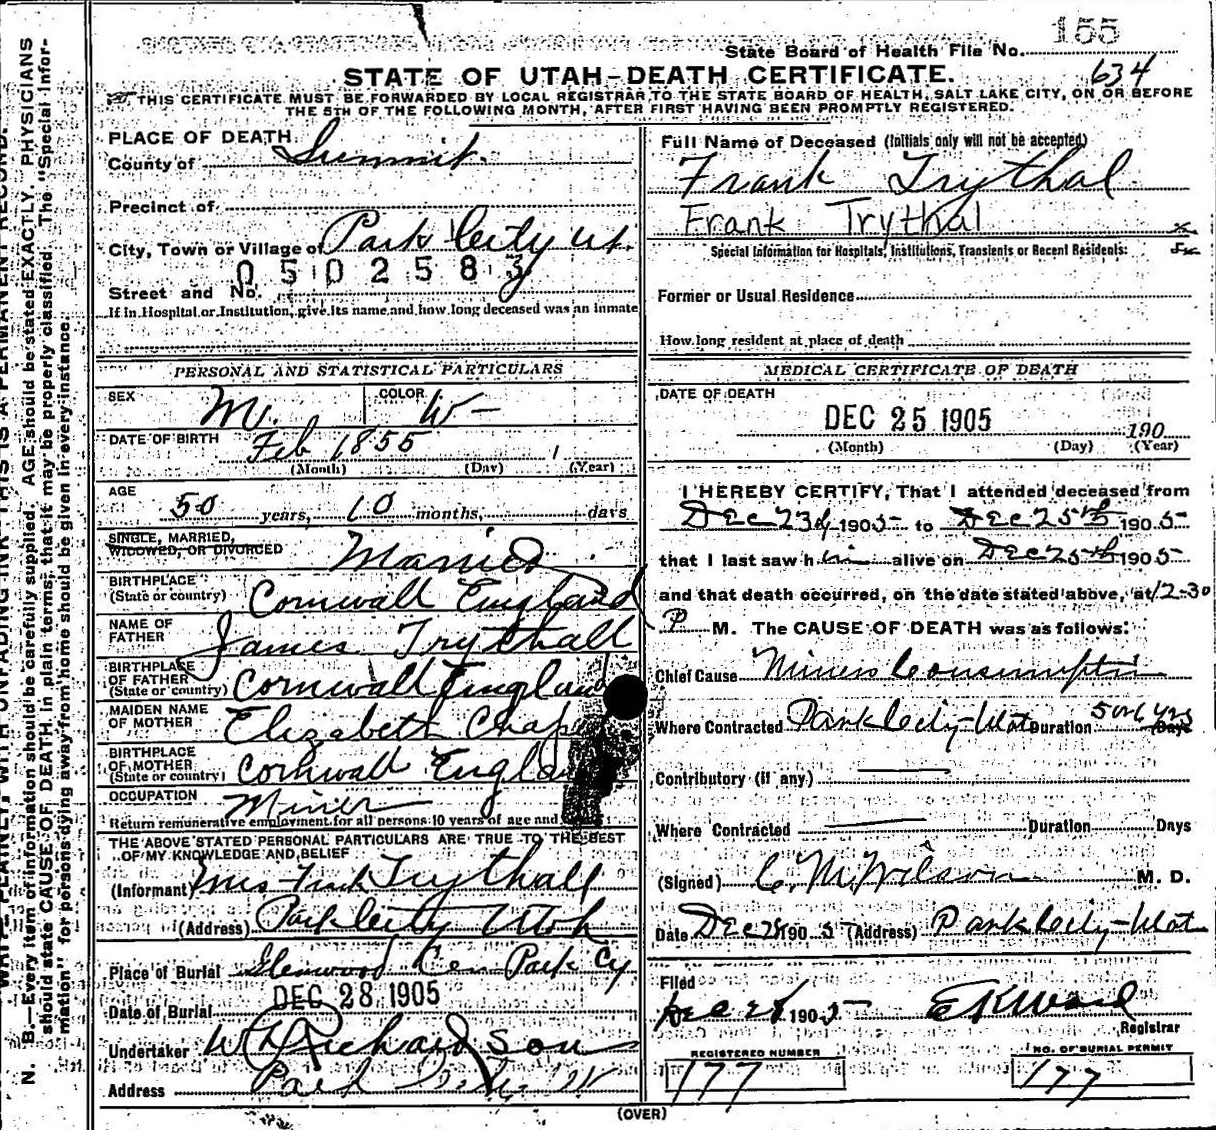 155
State Board of Health File No.
634
STATE OF UTAH—DEATH CERTIFICATE.
THIS CERTIFICATE MUST BE FORWARDED BY LOCAL REGISTRAR TO THE STATE BOARD OF HEALTH, SALT LAKE CITY, ON OR BEFORE
THE 5TH OF THE FOLLOWING MONTH, AFTER FIRST HAVING BEEN PROMPTLY REGISTERED.
N. B.—Every item of information should be carefully supplied. AGE should be stated EXACTLY. PHYSICIANS
should state CAUSE OF DEATH in plain terms, that it may be properly classified. The "Special Infor-
mation" for persons dying away from home should be given in every instance.
PLACE OF DEATH
County of Summit.
Precinct of
City, Town or Village of Park City Ut.
0502583
Street and No.
If in Hospital or Institution, give its name and how long deceased was an inmate
PERSONAL AND STATISTICAL PARTICULARS
SEX M. COLOR W—
DATE OF BIRTH Feb 1855
(Month) (Day) (Year)
AGE 50 years, 10 months, days
SINGLE, MARRIED,
WIDOWED, OR DIVORCED Married
BIRTHPLACE
(State or country) Cornwall England
NAME OF
FATHER James Trythall
BIRTHPLACE
OF FATHER
(State or country) Cornwall England
MAIDEN NAME
OF MOTHER Elizabeth
BIRTHPLACE
OF MOTHER
(State or country) Cornwall England
OCCUPATION Miner
Return remunerative employment for all persons 10 years of age and
THE ABOVE STATED PERSONAL PARTICULARS ARE TRUE TO THE BEST
OF MY KNOWLEDGE AND BELIEF
(Informant) Mrs Frank Trythall
(Address) Park City Utah
Place of Burial Glenwood Cem Park Cy
Date of Burial DEC 28 1905
Undertaker W Richardson
Address Park City Ut
Full Name of Deceased (Initials only will not be accepted)
Frank Trythal
Frank Trythal
Special Information for Hospitals, Institutions, Transients or Recent Residents:
Former or Usual Residence
How long resident at place of death
MEDICAL CERTIFICATE OF DEATH
DATE OF DEATH
DEC 25 1905
190
(Month) (Day) (Year)
I HEREBY CERTIFY, That I attended deceased from
Dec 23d 1905 to Dec 25th 1905
that I last saw him alive on Dec 25th 1905
and that death occurred, on the date stated above, at 12-30
P M. The CAUSE OF DEATH was as follows:
Chief Cause Miners Consumption
Where Contracted Park City-Utah Duration 5 or 6 yrs Days
Contributory (if any)
Where Contracted Duration Days
(Signed) C. M. Wilson M. D.
Date Dec 28 1905 (Address) Park City-Utah
Filed
Dec 28 1905 E K Ward
Registrar
REGISTERED NUMBER
177
NO. OF BURIAL PERMIT
177
(OVER)